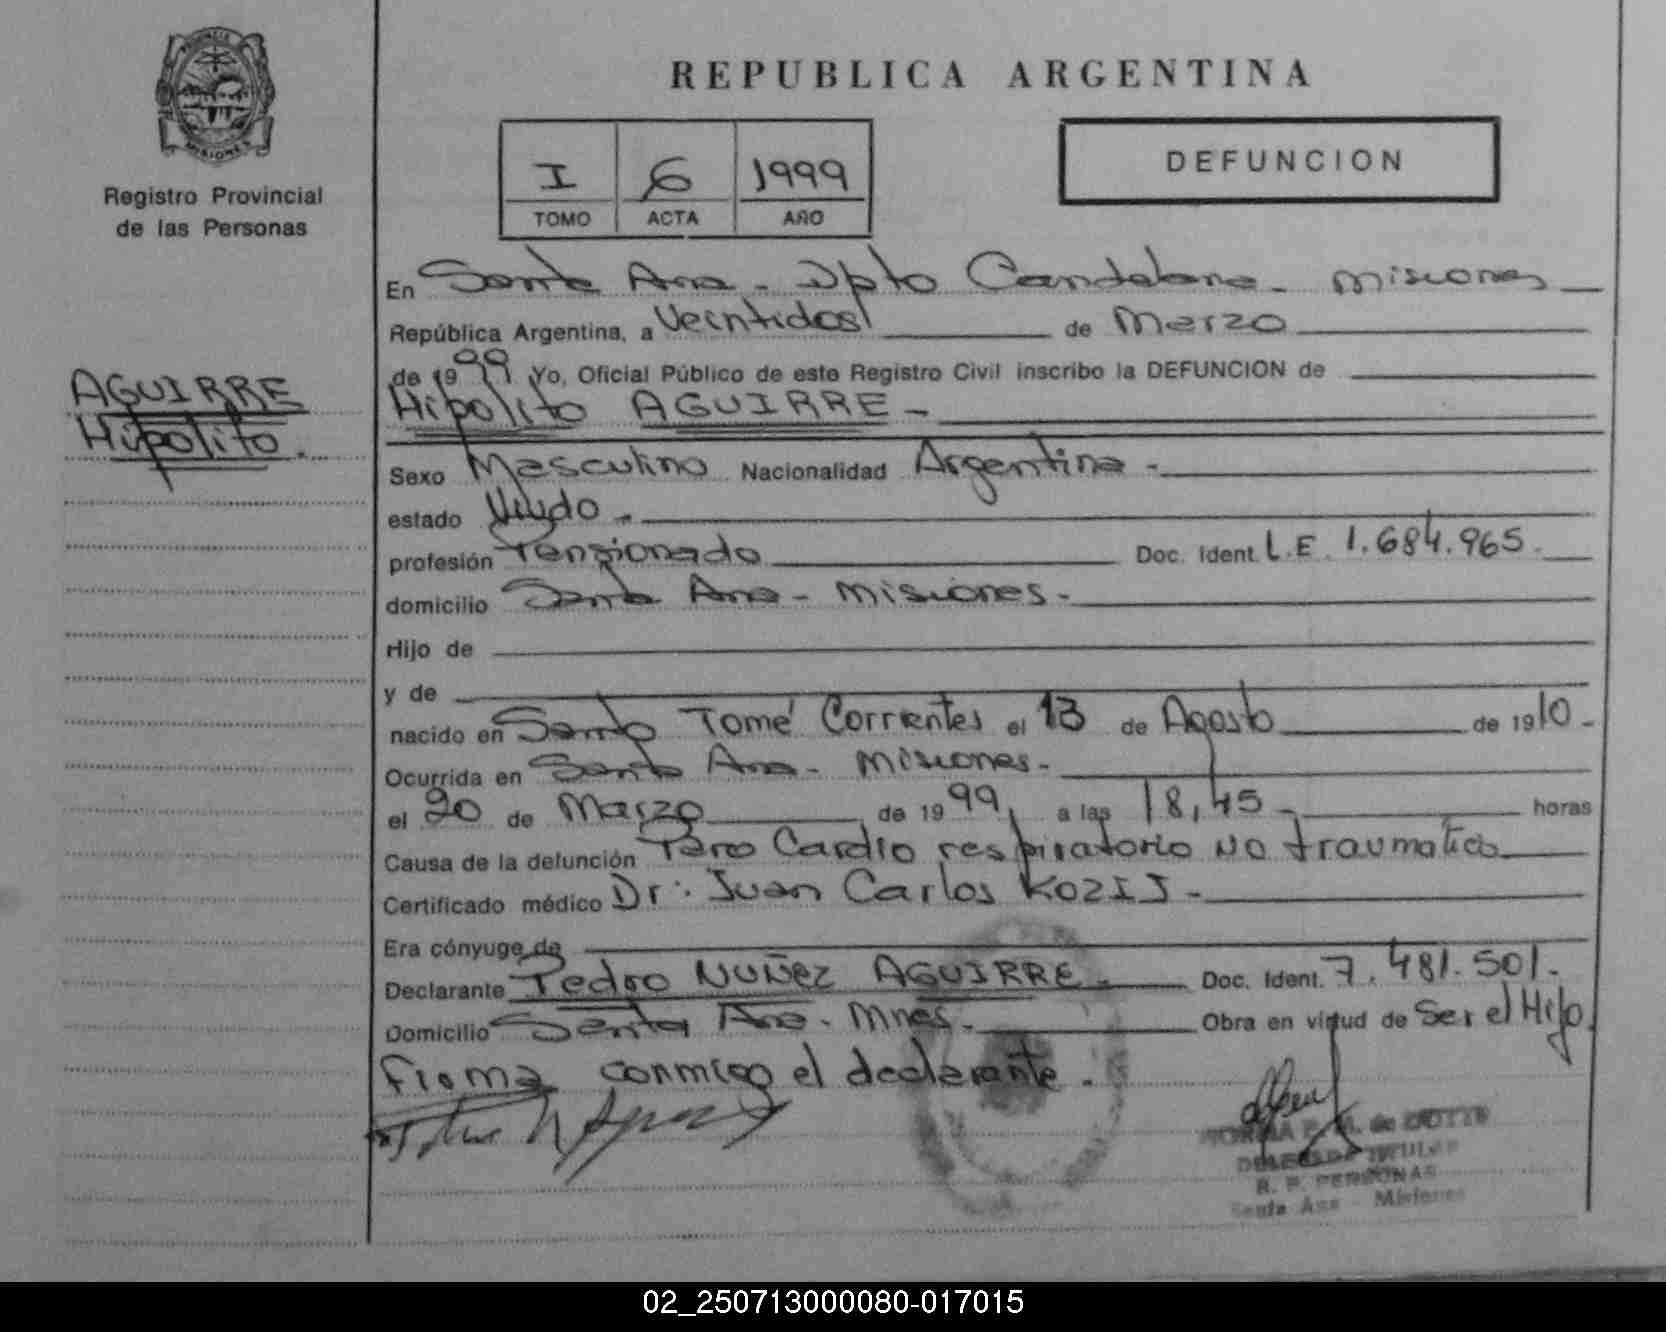 PROVINCIA
MISIONES
Registro Provincial
de las Personas
AGUIRRE
Hipolito.
REPUBLICA ARGENTINA
I 6 1999
TOMO ACTA AÑO
DEFUNCION
En Santa Ana - Dpto Candelaria - Misiones
República Argentina, a Veintidos de Marzo
de 1999 Yo, Oficial Público de este Registro Civil inscribo la DEFUNCION de
Hipolito AGUIRRE -
Sexo Masculino Nacionalidad Argentina -
estado Viudo -
profesión Pensionado Doc. Ident. L.E. 1.684.965.
domicilio Santa Ana - Misiones -
Hijo de
y de
nacido en Santo Tomé Corrientes el 13 de Agosto de 1910 -
Ocurrida en Santa Ana - Misiones -
el 20 de Marzo de 1999, a las 18,45 - horas
Causa de la defunción Paro Cardio respiratorio No traumatico
Certificado médico Dr: Juan Carlos KOZIJ -
Era cónyuge de
Declarante Pedro NUÑEZ AGUIRRE - Doc. Ident. 7.481.501.
Domicilio Santa Ana - Mnes - Obra en virtud de Ser el Hijo.
Firma conmigo el declarante.
NORMA M. de
DELEGADA TITULAR
R. P. PERSONAS
Santa Ana - Misiones
02_250713000080-017015